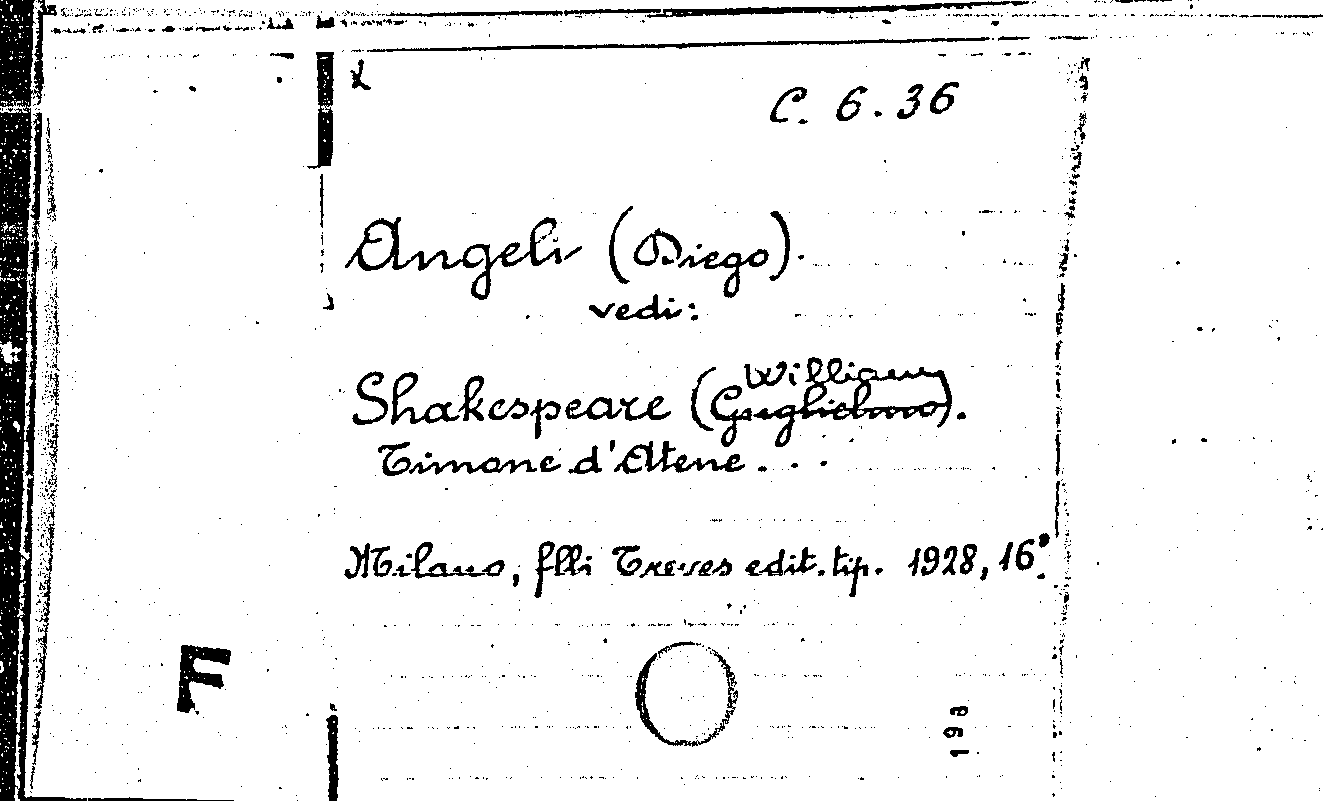 C. 6.36
Angeli (Diego).
vedi:
William
Shakespeare (Guglielmo).
Timone d'Atene...
Milano, flli Treves edit. tip. 1928, 16°.
F
198